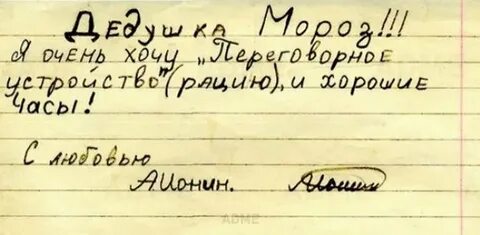 Дедушка Мороз!!!
Я очень хочу „Переговорное
устройство"(рацию), и хорошие
часы!
С любовью
АИонин.
ADME